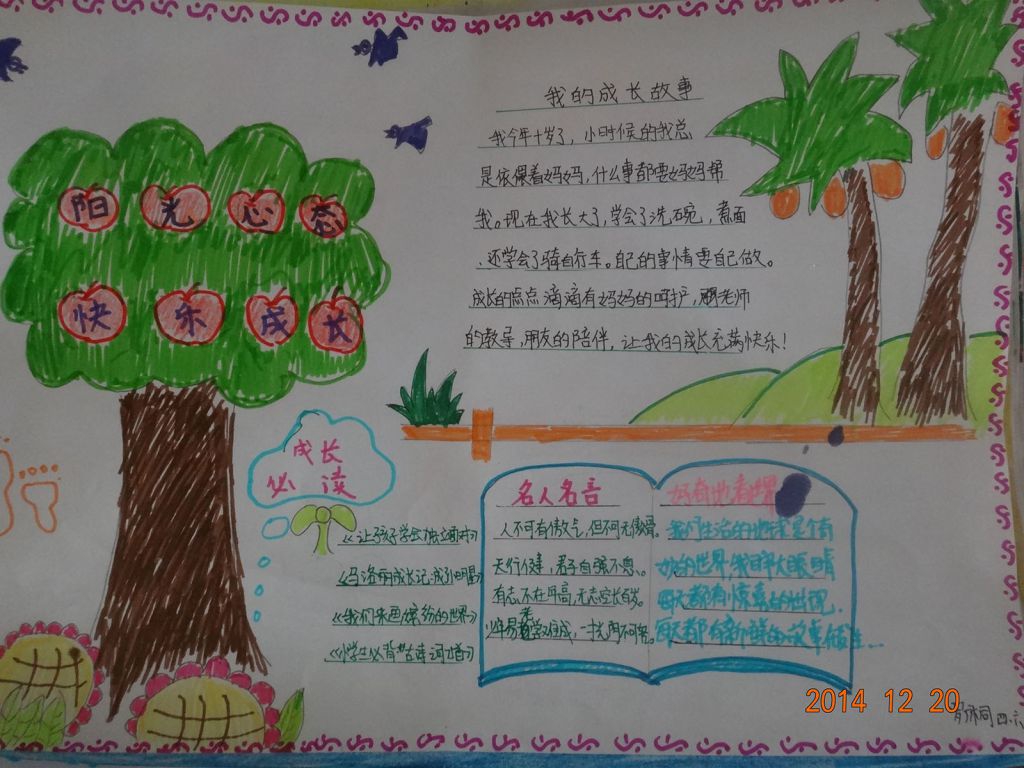 阳光心态
快乐成长
我的成长故事
我今年十岁了，小时候的我总
是依偎着妈妈，什么事都要妈妈帮
我。现在我长大了，学会了洗碗，煮面
、还学会了骑自行车。自己的事情要自己做。
成长的点点滴滴有妈妈的呵护，老师
的教导，朋友的陪伴，让我的成长充满快乐！
成长
必读
《让孩子学会独立
成长记
《我们来画缤纷的世界》
《小学生必背古诗词
名人名言
人不可有傲气，但不可无傲骨。
天行健，君子自强不息。
有志不在年高，无志空长百岁。
易老学难成，一
好奇地看世界
我们生活的地球是个奇
妙的世界，我睁大眼睛
每天都有惊喜的
每天都有新鲜的故事
2014 12 20
四.六